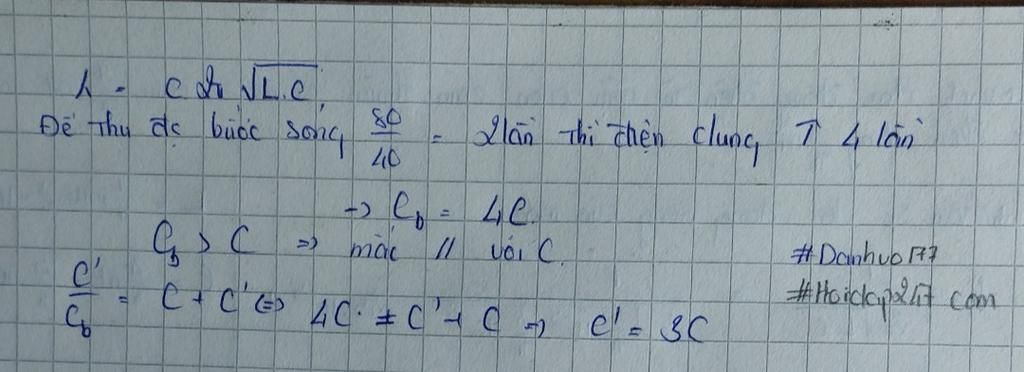 λ = c 2π √L.C
Để thu đc bước sóng 80/40 = 2 lần thì điện dung ↑ 4 lần
→ C_b = 4C.
C_b > C ⇒ mắc // với C.
C'/C_b = C + C' ⇔ 4C = C' + C ⇒ C' = 3C
#Danhvo177
#Hoidap247 com